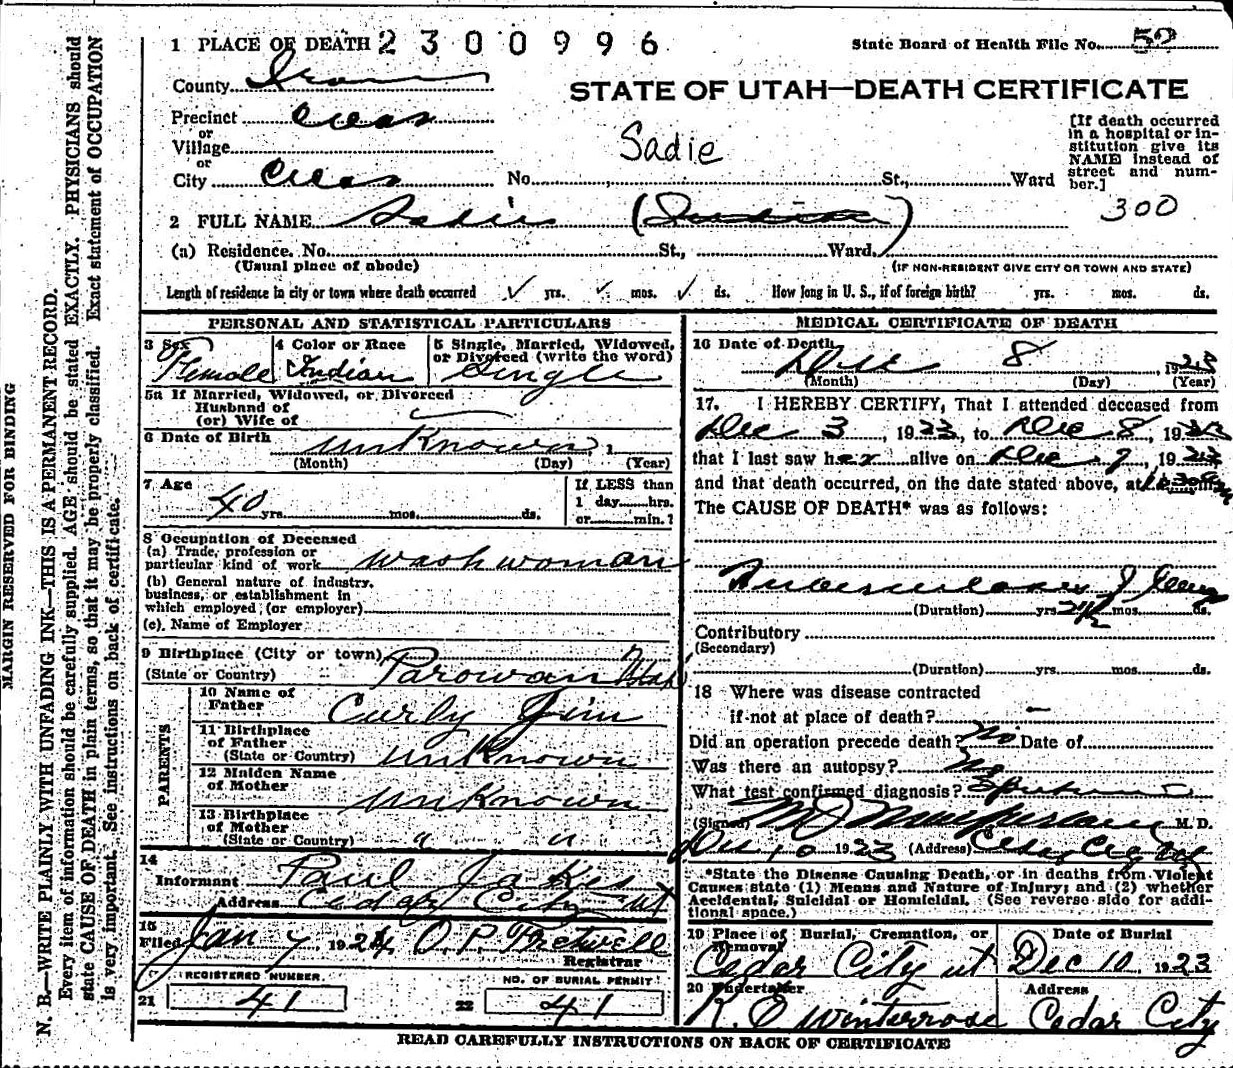 MARGIN RESERVED FOR BINDING
N. B.—WRITE PLAINLY WITH UNFADING INK—THIS IS A PERMANENT RECORD.
Every item of information should be carefully supplied. AGE should be stated EXACTLY. PHYSICIANS should
state CAUSE OF DEATH in plain terms, so that it may be properly classified. Exact statement of OCCUPATION
is very important. See instructions on back of certificate.
1 PLACE OF DEATH 2300996
State Board of Health File No. 52
County Iron
STATE OF UTAH—DEATH CERTIFICATE
Precinct Cedar
or
Village
or
City Cedar No. St., Ward
Sadie
[If death occurred
in a hospital or in-
stitution give its
NAME instead of
street and num-
ber.]
300
2 FULL NAME Sadie (Indian)
(a) Residence. No. St., Ward.
(Usual place of abode) (IF NON-RESIDENT GIVE CITY OR TOWN AND STATE)
Length of residence in city or town where death occurred ✓ yrs. ✓ mos. ✓ ds. How long in U. S., if of foreign birth? yrs. mos. ds.
PERSONAL AND STATISTICAL PARTICULARS
3 Sex
Female
4 Color or Race
Indian
5 Single, Married, Widowed,
or Divorced (write the word)
Single
5a If Married, Widowed, or Divorced
Husband of
(or) Wife of
6 Date of Birth unknown, 1
(Month) (Day) (Year)
7 Age
40 yrs. mos. ds.
If LESS than
1 day hrs.
or min.?
8 Occupation of Deceased
(a) Trade, profession or
particular kind of work washwoman
(b) General nature of industry,
business, or establishment in
which employed (or employer)
(c). Name of Employer
9 Birthplace (City or town)
(State or Country) Parowan Utah
PARENTS
10 Name of
Father Curly Jim
11 Birthplace
of Father
(State or Country) unknown
12 Maiden Name
of Mother unknown
13 Birthplace
of Mother
(State or Country) " "
14
Informant Paul Jakes
Address Cedar City ut
15
Filed Jan 7, 1924 O. P. Fretwell
Registrar
REGISTERED NUMBER
21 41
NO. OF BURIAL PERMIT
22 41
MEDICAL CERTIFICATE OF DEATH
16 Date of Death
Dec 8, 1923
(Month) (Day) (Year)
17. I HEREBY CERTIFY, That I attended deceased from
Dec 3, 1923, to Dec 8, 1923
that I last saw her alive on Dec 7, 1923
and that death occurred, on the date stated above, at
The CAUSE OF DEATH* was as follows:
Tuberculosis of lung
(Duration) yrs 2 1/2 mos. ds.
Contributory
(Secondary)
(Duration) yrs. mos. ds.
18 Where was disease contracted
if not at place of death? —
Did an operation precede death? No Date of
Was there an autopsy? No
What test confirmed diagnosis? Sputum
(Signed) M. D.
Dec 10 1923 (Address) Cedar City Ut
*State the Disease Causing Death, or in deaths from Violent
Causes state (1) Means and Nature of Injury; and (2) whether
Accidental, Suicidal or Homicidal. (See reverse side for addi-
tional space.)
19 Place of Burial, Cremation, or
Removal
Cedar City ut
Date of Burial
Dec 10, 1923
20 Undertaker
K. O Winterrose
Address
Cedar City
READ CAREFULLY INSTRUCTIONS ON BACK OF CERTIFICATE